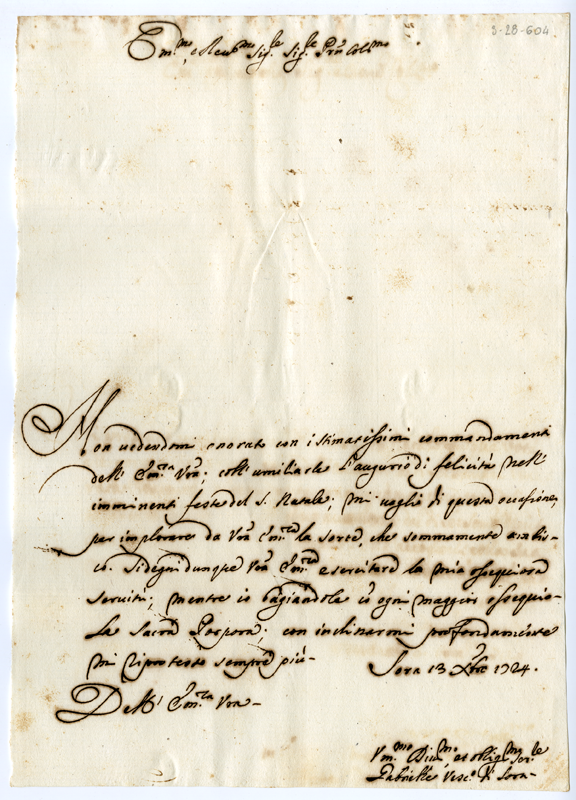 3-28-604
Em.mo, e Reu.mo Sig.re Sig.re Prōn Col.mo
Non uedendomi onorato con i stimatissimi commandamenti
dell' Em.za Vrā; coll' umiliarle l'augurio di felicità nell'
imminenti feste del S. Natale; mi uaglio di questa occasione,
per implorare da Vrā Em.za la sorte, che sommamente ambis-
co. Si degni dunque Vrā Em.za esercitare la mia ossequiosa
seruitù; mentre io bagiandole cō ogni maggior ossequio
la Sacra Porpora; con inclinarmi profondamente
mi riprotesto sempre più-
Sora 13 Xbre 1724.
Dell' Em.za Vrā-
Vm.mo Diu.mo, et oblig.mo Ser.re
Gabrielle Vesc.o di Sora-